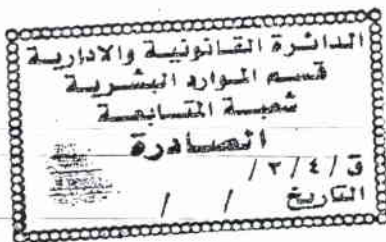 الدائرة القانونية والادارية
قسم الموارد البشرية
شعبة المتابعة
الصادرة
ق / ٤ / ٢ /
التاريخ / /